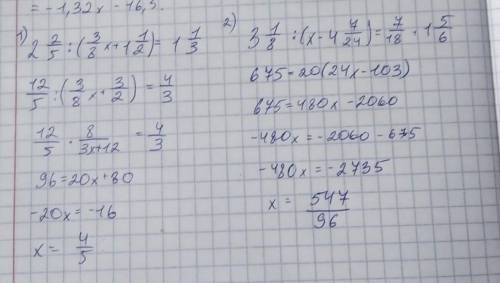 = -1,32x - 16,5.
1) 2 2/5 : (3/8 x + 1 1/2) = 1 1/3
12/5 : (3/8 x + 3/2) = 4/3
12/5 · 8/3x+12 = 4/3
96 = 20x + 80
-20x = -16
x = 4/5
2) 3 1/8 : (x - 4 7/24) = 7/18 · 1 5/6
675 = 20(24x - 103)
675 = 480x - 2060
-480x = -2060 - 675
-480x = -2735
x = 547/96